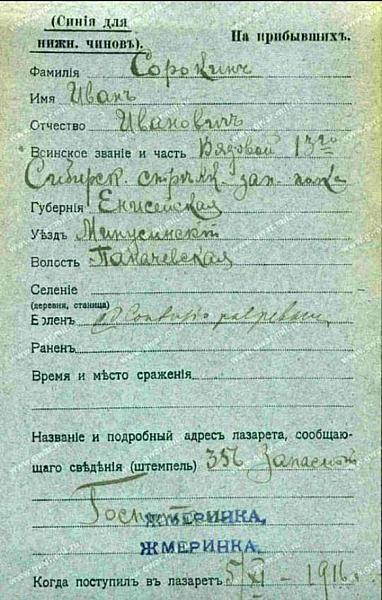 (Синія для
нижн. чиновъ). На прибывшихъ.
Фамилія Сорокинъ
Имя Иванъ
Отчество Ивановичъ
Воинское званіе и часть Рядовой 13го
Сибирск. стрѣлк. зап. полка
Губернія Енисейская
Уѣздъ Минусинскій
Волость
Селеніе
(деревня, станица)
Боленъ
Раненъ
Время и мѣсто сраженія
Названіе и подробный адресъ лазарета, сообщаю-
щаго свѣдѣнія (штемпель) 356 Запасной
ЖМЕРИНКА,
ЖМЕРИНКА.
Когда поступилъ въ лазаретъ 5/XI – 1916 г.